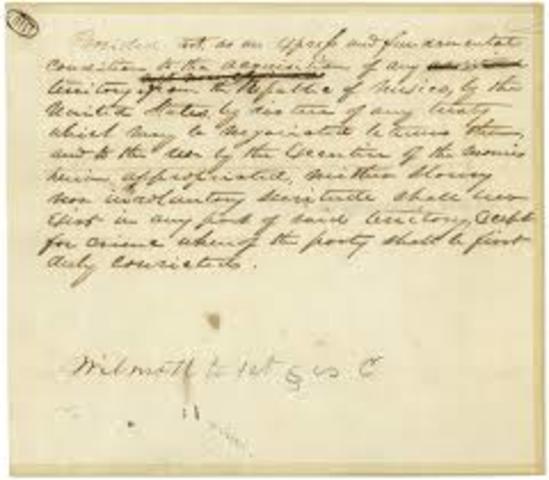 Provided, that, as an express and fundamental
condition to the acquisition of any
territory from the Republic of Mexico, by the
United States, by virtue of any treaty
which may be negotiated between them,
and to the use by the Executive of the monies
herein appropriated, neither slavery
nor involuntary servitude shall ever
exist in any part of said territory, except
for crime whereof the party shall be first
duly convicted.
Wilmot